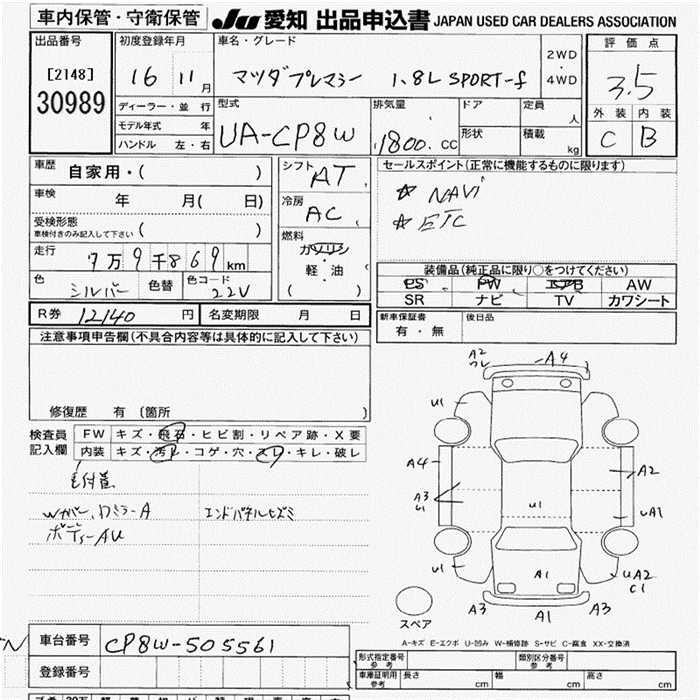 車内保管・守衛保管 JU 愛知 出品申込書 JAPAN USED CAR DEALERS ASSOCIATION
出品番号
[2148]
30989
初度登録年月
16 11月
車名・グレード
マツダプレマシー 1.8L SPORT-f
2WD
4WD
評価点
3.5
外装 内装
C B
ディーラー・並行
モデル年式 年
ハンドル 左・右
型式
UA-CP8W
排気量
1800.CC
ドア
形状
定員 人
積載 kg
車歴 自家用・( )
車検 年 月( 日)
受検形態
車検付きのみ記入して下さい ( )
走行 7万9千869km
色 シルバー 色替 色コード 22V
シフト AT
冷房 AC
燃料
ガソリン
軽・油
( )
セールスポイント(正常に機能するものに限ります)
☆ NAVi
☆ ETC
装備品(純正品に限り○をつけてください)
PS PW エアB AW
SR ナビ TV カワシート
R券 12140 円 名変期限 月 日
新車保証書 有・無 後日品
注意事項申告欄(不具合内容等は具体的に記入して下さい)
修復歴 有 (箇所 )
検査員
記入欄
FW キズ・飛石・ヒビ割・リペア跡・X要
内装 キズ・汚レ・コゲ・穴・スレ・キレ・破レ
Wカバー、ワミラーA エンドパネルヒズミ
ボディーAU
A2
ワレ
A4
U1
A4
A3
U1
A2
U1
UA1
U1
A1
UA2
C1
A3
A1
A3
スペア
A-キズ E-エクボ U-凹み W-補修跡 S-サビ C-腐食 XX-交換済
車台番号 CP8W-505561
登録番号
形式指定番号
参考
類別区分番号
参考
車庫証明用
参考
長さ cm 幅 cm 高さ cm